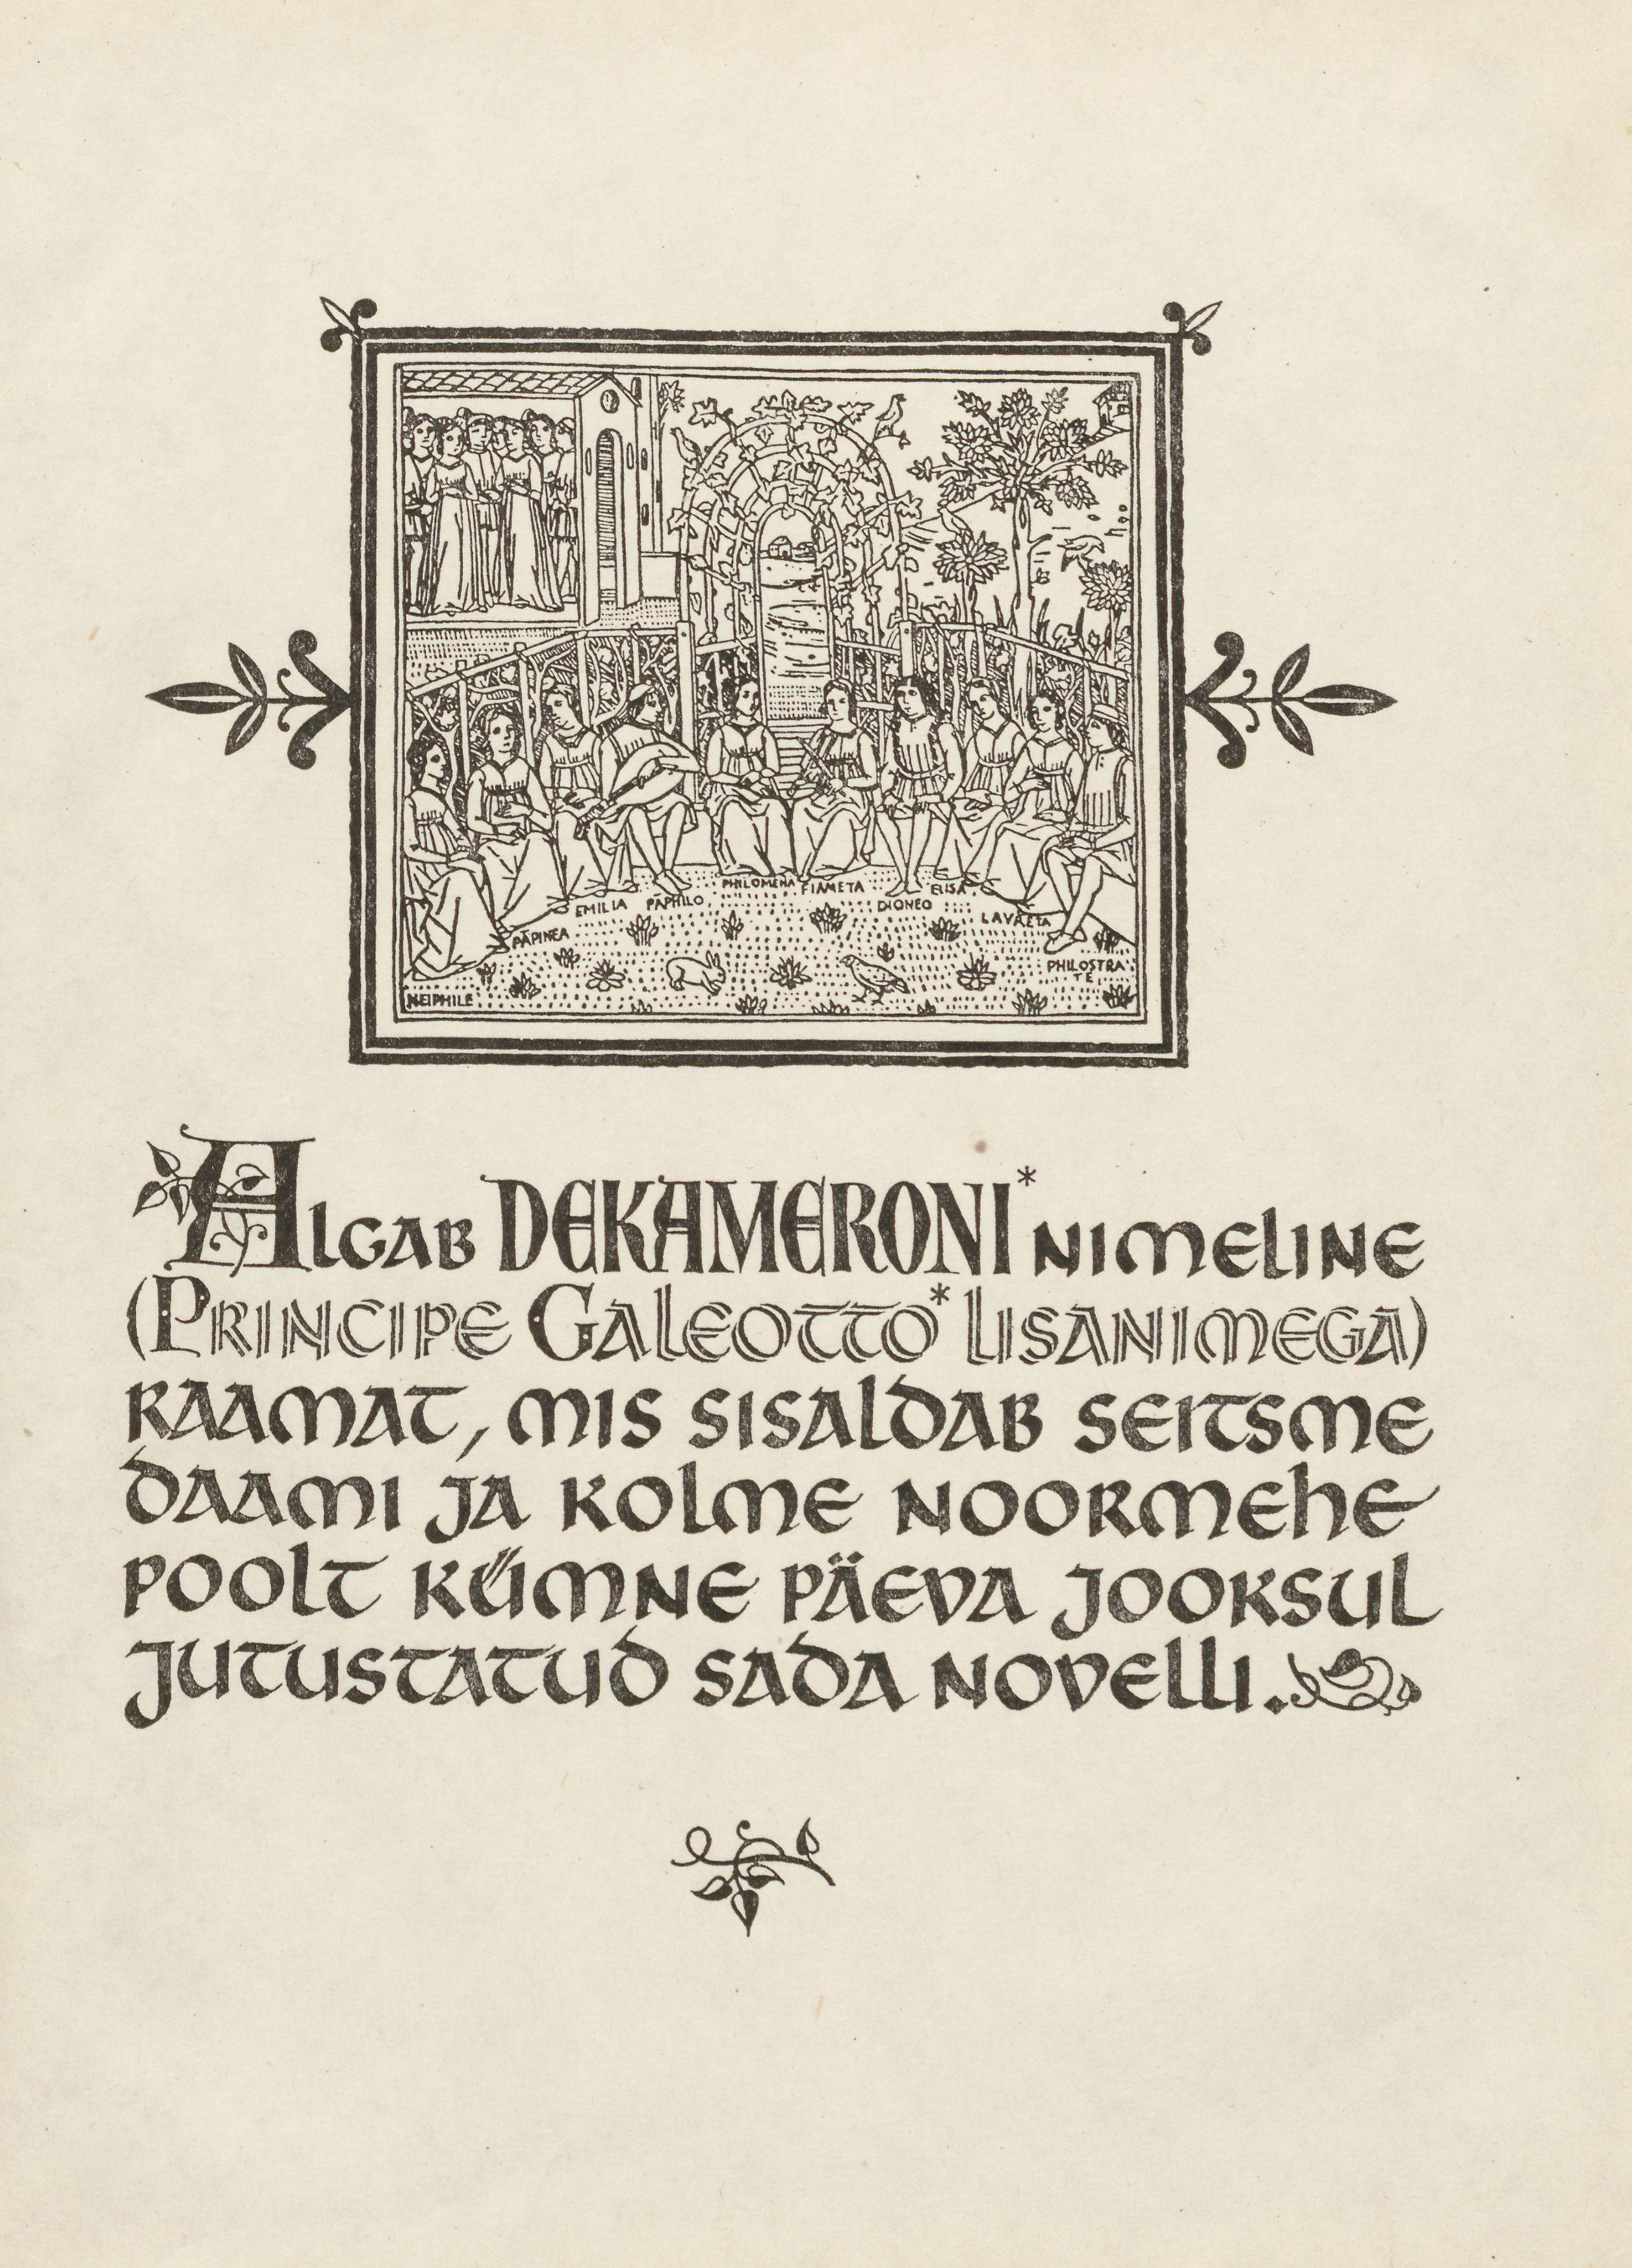 PHILOMENA FIAMETA ELISA
EMILIA PĀPHILO DIONEO
LAVRETA
PĀPINEA
PHILOSTRA
TE
NEIPHILE
Algab DEKAMERONI* nimeline
(Principe Galeotto* lisanimega)
raamat, mis sisaldab seitsme
daami ja kolme noormehe
poolt kümne päeva jooksul
jutustatud sada novelli.